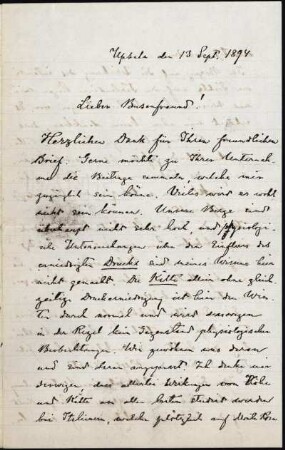 Upsala den 13 Sept. 1894
Lieber Busenfreund!
Herzlichen Dank für Ihren freundlichen
Brief. Gerne möchte zu Ihren Unterneh-
men die Beiträge sammeln, welche mir
zugänglich sein können. Vieles wird es wohl
nicht sein können. Unsere Berge sind
überhaupt nicht sehr hoch, und physiologi-
sche Untersuchungen über den Einfluss des
erniedrigten Druckes sind meines Wissens hier
nicht gemacht. Die Kälte allein ohne gleich-
zeitige Druckerniedrigung ist hier den Win-
ter durch normal und wird deswegen
in der Regel kein Gegenstand physiologischer
Beobachtungen. Wir gewöhnen uns daran
und sind daran angepasst. Ich denke mir
deswegen, dass alle Wirkungen von Höhe
und Kälte am besten studiert werden
bei Italienern, welche plötzlich auf Monte Rosa